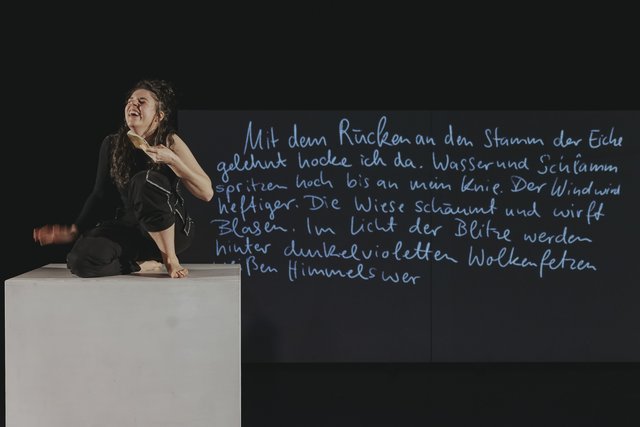 Mit dem Rücken an den Stamm der Eiche
gelehnt hocke ich da. Wasser und Schlamm
spritzen hoch bis an mein Knie. Der Wind wird
heftiger. Die Wiese schäumt und wirft
Blasen. Im Licht der Blitze werden
hinter dunkelvioletten Wolkenfetzen
Himmelswer